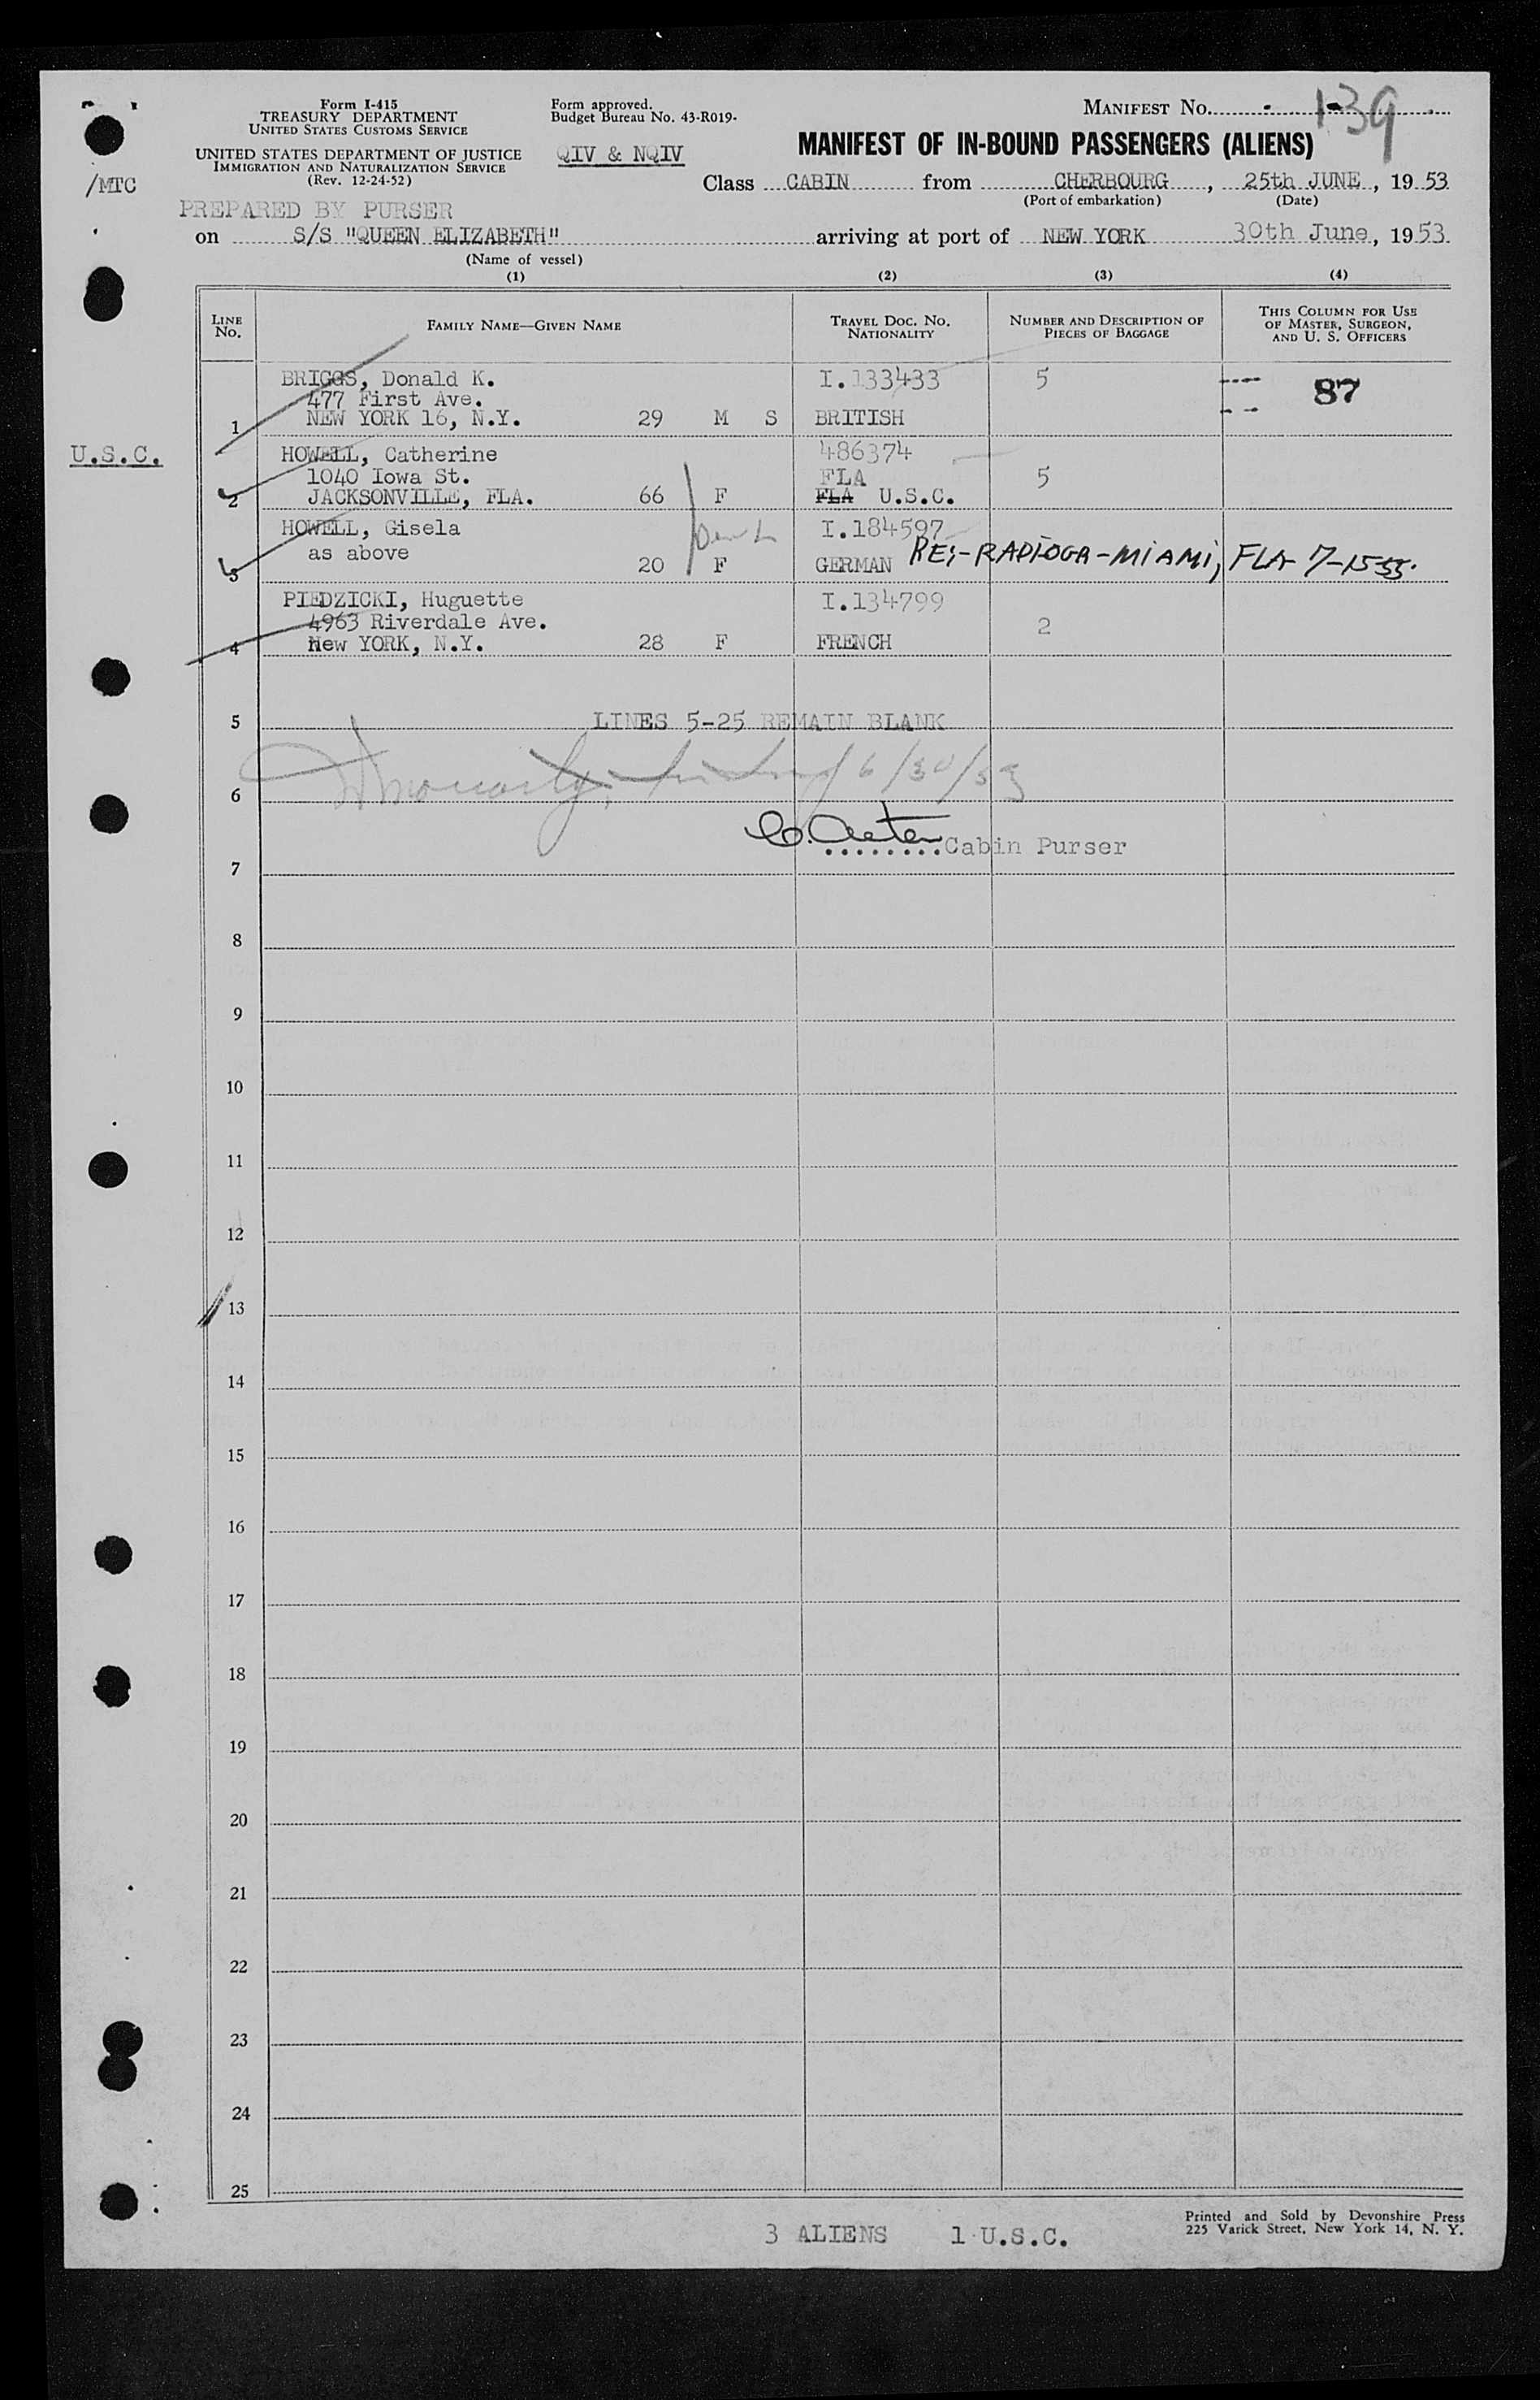 Form I-415
TREASURY DEPARTMENT
UNITED STATES CUSTOMS SERVICE
UNITED STATES DEPARTMENT OF JUSTICE
IMMIGRATION AND NATURALIZATION SERVICE
(Rev. 12-24-52)
Form approved.
Budget Bureau No. 43-R019.
QIV & NQIV
MANIFEST NO. 139
MANIFEST OF IN-BOUND PASSENGERS (ALIENS)
/MTC
Class CABIN from CHERBOURG, 25th JUNE, 1953
(Port of embarkation) (Date)
PREPARED BY PURSER
on S/S "QUEEN ELIZABETH" arriving at port of NEW YORK 30th June, 1953
(Name of vessel)
(1) (2) (3) (4)
LINE NO. FAMILY NAME—GIVEN NAME TRAVEL DOC. NO. NATIONALITY NUMBER AND DESCRIPTION OF PIECES OF BAGGAGE THIS COLUMN FOR USE OF MASTER, SURGEON, AND U. S. OFFICERS
BRIGGS, Donald K. I.133433 5 87
477 First Ave.
1 NEW YORK 16, N.Y. 29 M S BRITISH
U.S.C. HOWELL, Catherine 486374
1040 Iowa St. FLA 5
2 JACKSONVILLE, FLA. 66 F FLA U.S.C.
HOWELL, Gisela I.184597
as above
3 20 F GERMAN RE:-RADIOGA-MIAMI, FLA 7-15-55.
PIEDZICKI, Huguette I.134799
4963 Riverdale Ave. 2
4 New YORK, N.Y. 28 F FRENCH
5 LINES 5-25 REMAIN BLANK
6/30/53
6
Cabin Purser
7
8
9
10
11
12
13
14
15
16
17
18
19
20
21
22
23
24
25
3 ALIENS 1 U.S.C.
Printed and Sold by Devonshire Press
225 Varick Street, New York 14, N. Y.